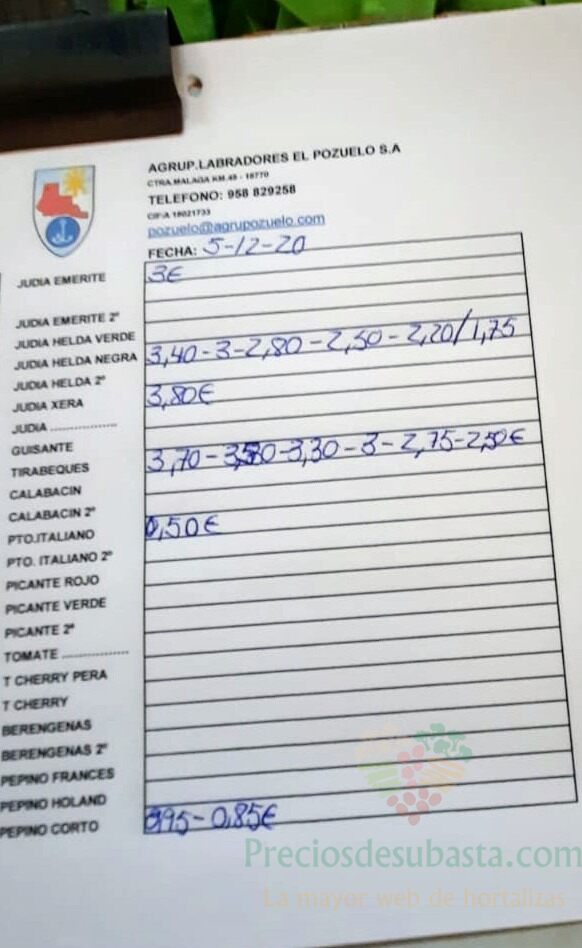 AGRUP.LABRADORES EL POZUELO S.A
CTRA.MALAGA KM.45 - 18770
TELEFONO: 958 829258
CIF:A 18021733
pozuelo@agrupozuelo.com
FECHA: 5-12-20
JUDIA EMERITE 3€
JUDIA EMERITE 2ª
JUDIA HELDA VERDE
JUDIA HELDA NEGRA 3,40-3-2,80-2,50-2,20/1,75
JUDIA HELDA 2ª
JUDIA XERA 3,80€
JUDIA ..................
GUISANTE
TIRABEQUES 3,70--3,30-3-2,75-2,50€
CALABACIN
CALABACIN 2ª
PTO.ITALIANO 0,50€
PTO. ITALIANO 2ª
PICANTE ROJO
PICANTE VERDE
PICANTE 2ª
TOMATE ..................
T CHERRY PERA
T CHERRY
BERENGENAS
BERENGENAS 2ª
PEPINO FRANCES
PEPINO HOLAND
PEPINO CORTO 0,95-0,85€
Preciosdesubasta.com
La mayor web de hortalizas